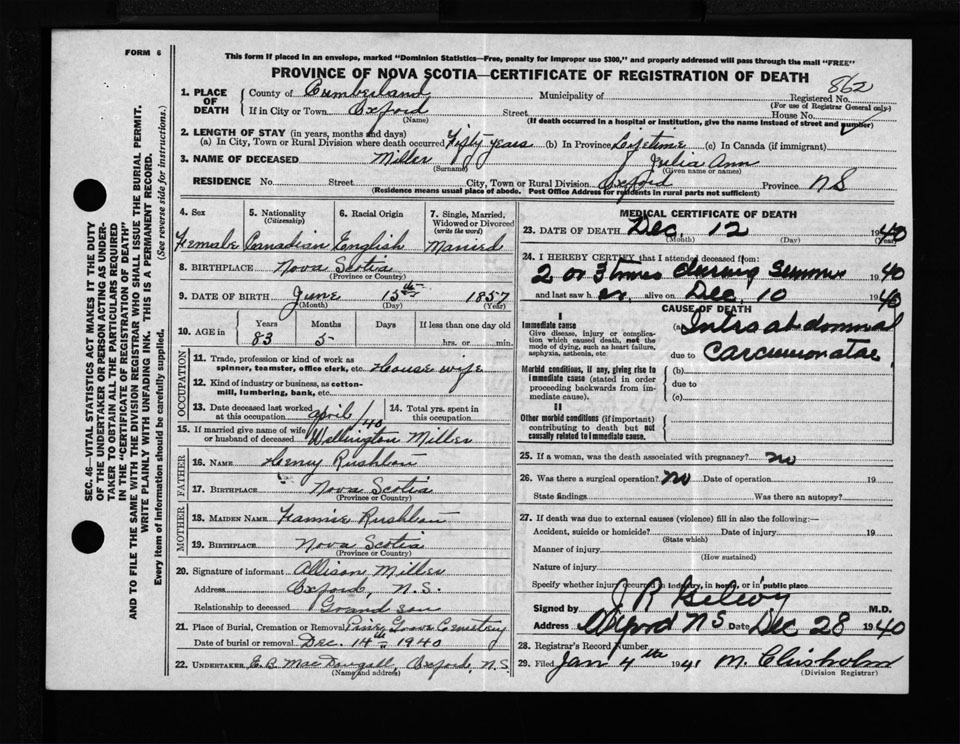 FORM 6
This form if placed in an envelope, marked "Dominion Statistics—Free, penalty for improper use $300," and properly addressed will pass through the mail "FREE"
PROVINCE OF NOVA SCOTIA—CERTIFICATE OF REGISTRATION OF DEATH
862
1. PLACE OF DEATH
County of Cumberland Municipality of Registered No.
(For use of Registrar General only)
If in City or Town Oxford Street House No.
(Name) (If death occurred in a hospital or institution, give the name instead of street and number)
2. LENGTH OF STAY (in years, months and days)
(a) In City, Town or Rural Division where death occurred Fifty years (b) In Province Lifetime (c) In Canada (if immigrant)
3. NAME OF DECEASED Miller Julia Ann
(Surname) (Given name or names)
RESIDENCE No. Street City, Town or Rural Division Oxford Province NS
(Residence means usual place of abode. Post Office Address for residents in rural parts not sufficient)
SEC. 46—VITAL STATISTICS ACT MAKES IT THE DUTY
OF THE UNDERTAKER OR PERSON ACTING AS UNDER-
TAKER TO OBTAIN ALL THE PARTICULARS REQUIRED
IN THE "CERTIFICATE OF REGISTRATION OF DEATH"
AND TO FILE THE SAME WITH THE DIVISION REGISTRAR WHO SHALL ISSUE THE BURIAL PERMIT.
WRITE PLAINLY WITH UNFADING INK. THIS IS A PERMANENT RECORD.
Every item of information should be carefully supplied. (See reverse side for instructions.)
4. Sex 5. Nationality (Citizenship) 6. Racial Origin 7. Single, Married, Widowed or Divorced (write the word)
Female Canadian English Married
8. BIRTHPLACE Nova Scotia
(Province or Country)
9. DATE OF BIRTH June 15th 1857
(Month) (Day) (Year)
10. AGE in Years Months Days If less than one day old
83 5 hrs. or min.
OCCUPATION
11. Trade, profession or kind of work as
spinner, teamster, office clerk, etc. House wife
12. Kind of industry or business, as cotton-
mill, lumbering, bank, etc.
13. Date deceased last worked at this occupation April /40 14. Total yrs. spent in this occupation
15. If married give name of wife
or husband of deceased Wellington Miller
FATHER
16. NAME Henry Rushton
17. BIRTHPLACE Nova Scotia
(Province or Country)
MOTHER
18. MAIDEN NAME Fannie Rushton
19. BIRTHPLACE Nova Scotia
(Province or Country)
20. Signature of informant Allison Miller
Address Oxford, N.S.
Relationship to deceased Grand son
21. Place of Burial, Cremation or Removal Pine Grove Cemetery
Date of burial or removal Dec. 14th 1940
22. UNDERTAKER E. B. MacDougall, Oxford, N.S.
(Name and address)
MEDICAL CERTIFICATE OF DEATH
23. DATE OF DEATH Dec. 12 1940
(Month) (Day) (Year)
24. I HEREBY CERTIFY that I attended deceased from:
2 or 3 times during Summer 1940
and last saw her alive on Dec. 10 1940
CAUSE OF DEATH
I
Immediate cause
Give disease, injury or complica-
tion which caused death, not the
mode of dying, such as heart failure,
asphyxia, asthenia, etc.
(a) Intra abdominal
due to Carcinomatae
Morbid conditions, if any, giving rise to
immediate cause (stated in order
proceeding backwards from im-
mediate cause).
(b)
due to
(c)
II
Other morbid conditions (if important)
contributing to death but not
causally related to immediate cause.
25. If a woman, was the death associated with pregnancy? no
26. Was there a surgical operation? no Date of operation 19
State findings Was there an autopsy?
27. If death was due to external causes (violence) fill in also the following:—
Accident, suicide or homicide? Date of injury 19
(State which)
Manner of injury
(How sustained)
Nature of injury
Specify whether injury occurred in industry, in home, or in public place
Signed by J R M.D.
Address Oxford NS Date Dec 28 1940
28. Registrar's Record Number
29. Filed Jan 4th 1941 M. Chisholm
(Division Registrar)